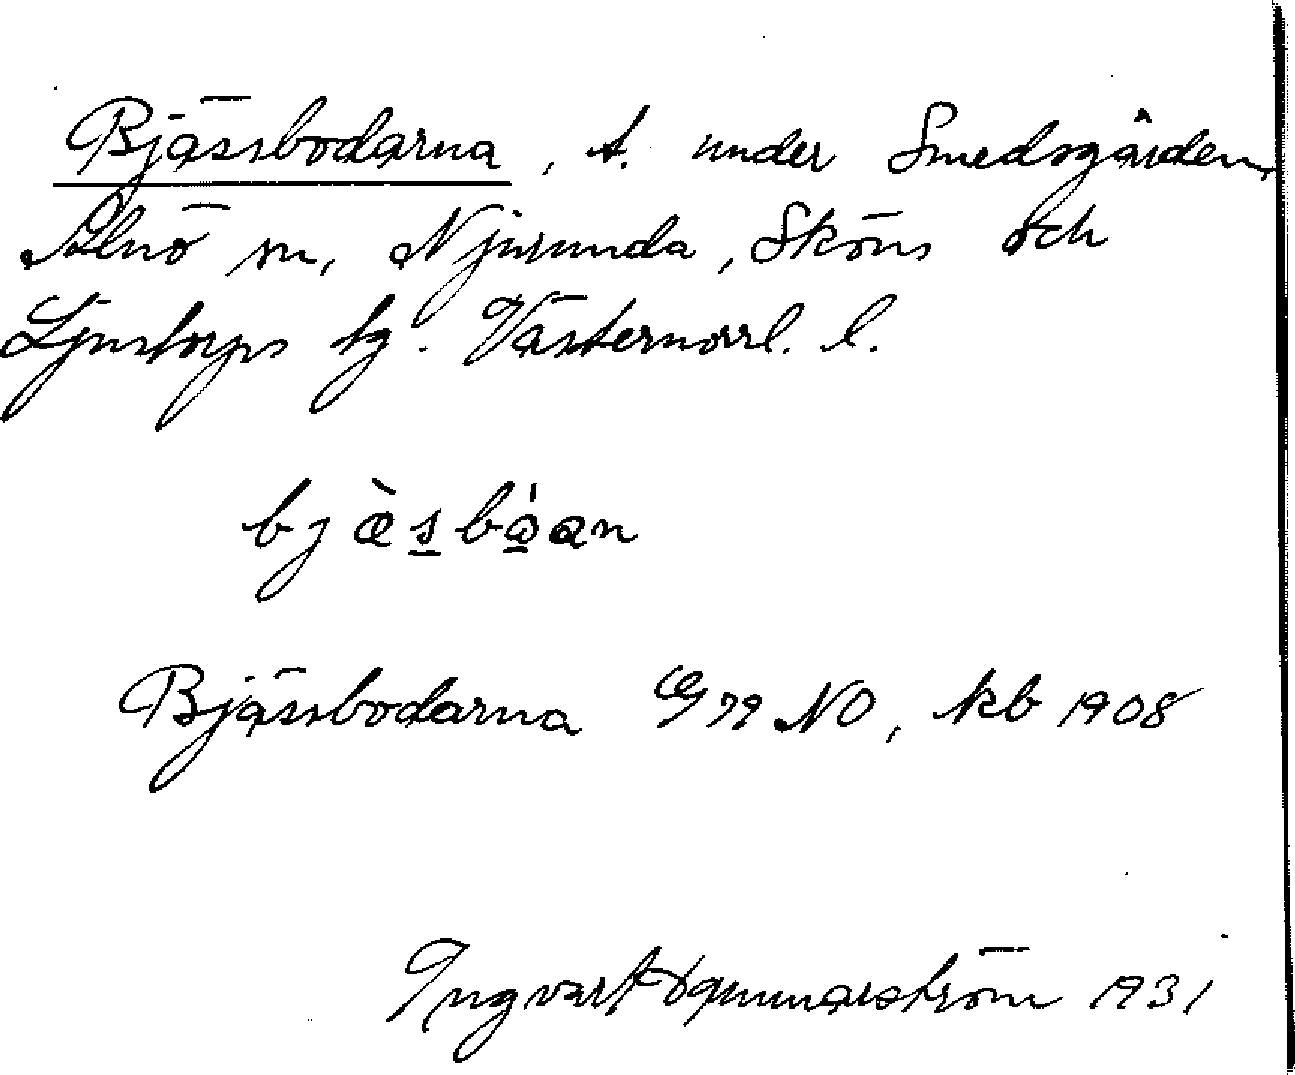 Bjässbodarna, t. under Smedsgården,
Alnö sn, Njurunda, Sköns och
Ljustorps tg. Västernorrl. l.
bjæ̀sbɷ́an
Bjässbodarna G 79 NO, kb 1908
Ingvart Hammarström 1931